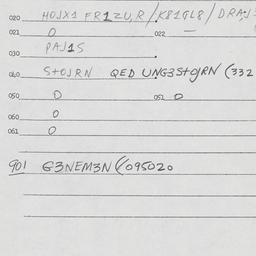 020 HOJX1 FR1ZU,R/K81GL8/DRAJ
021 O 022 —
030 PAJ1S
040 StOJRN QED UNG3StOJRN (332
050 O 051 O
060 O
061 O
901 G3NEM3N(/095020